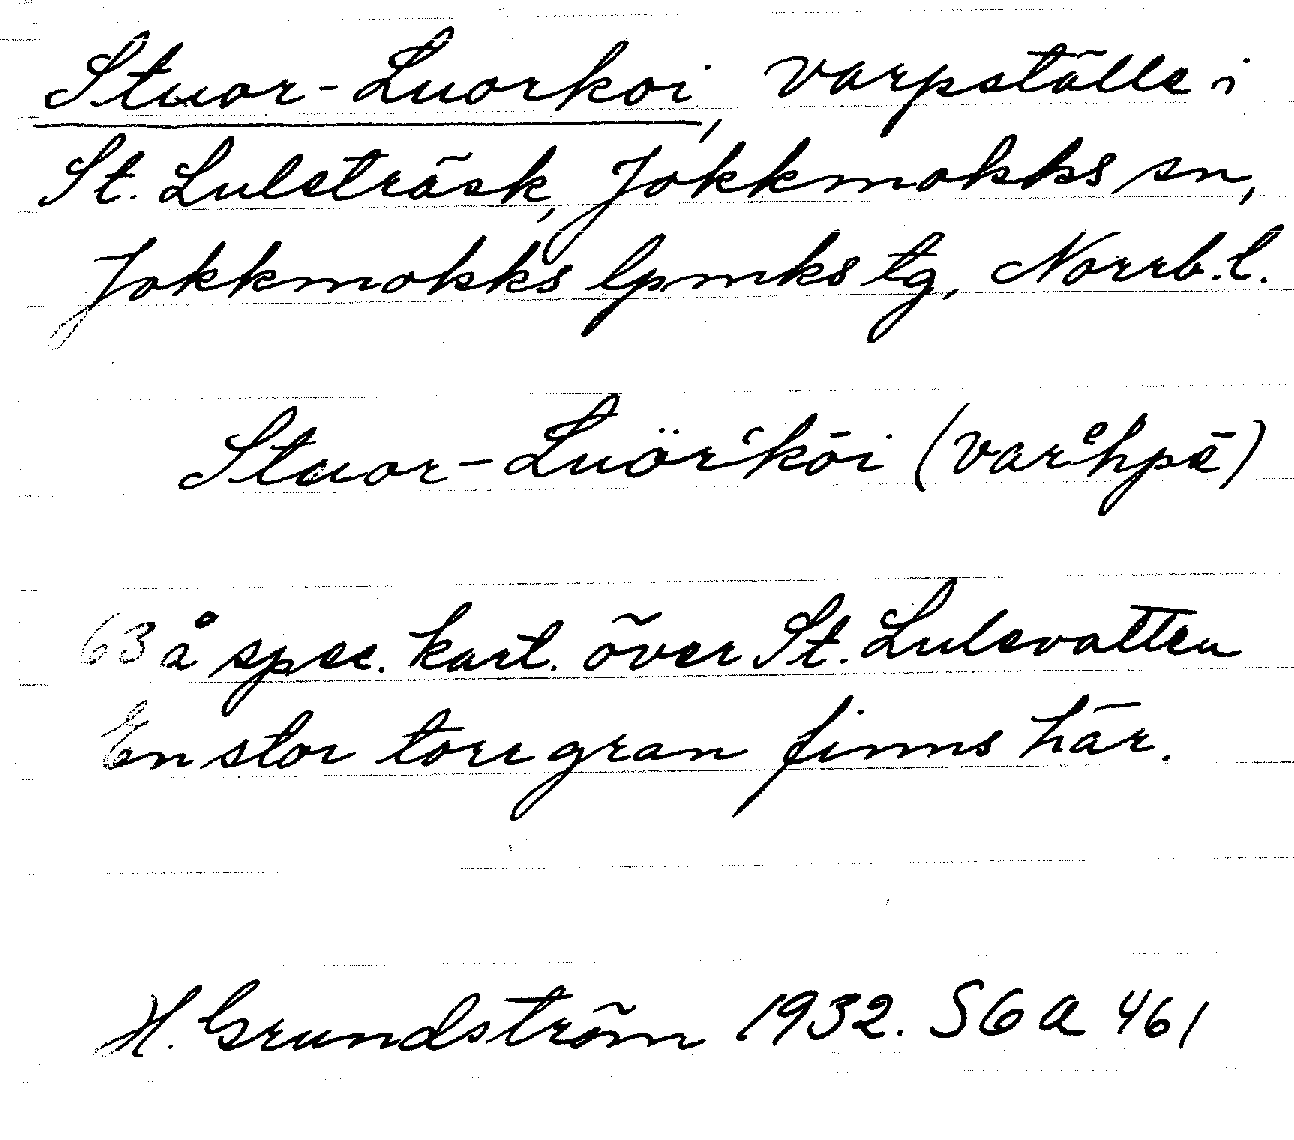 Stuor-Luorkoi, varpställe i
St. Luleträsk, Jokkmokks sn,
Jokkmokks lpmks tg, Norrb. l.
Stuor-Luörʻkōi (varͦhpē)
63 å spec. kart. över St. Lulevatten
En stor torrgran finns här.
H. Grundström 1932. SGA 461